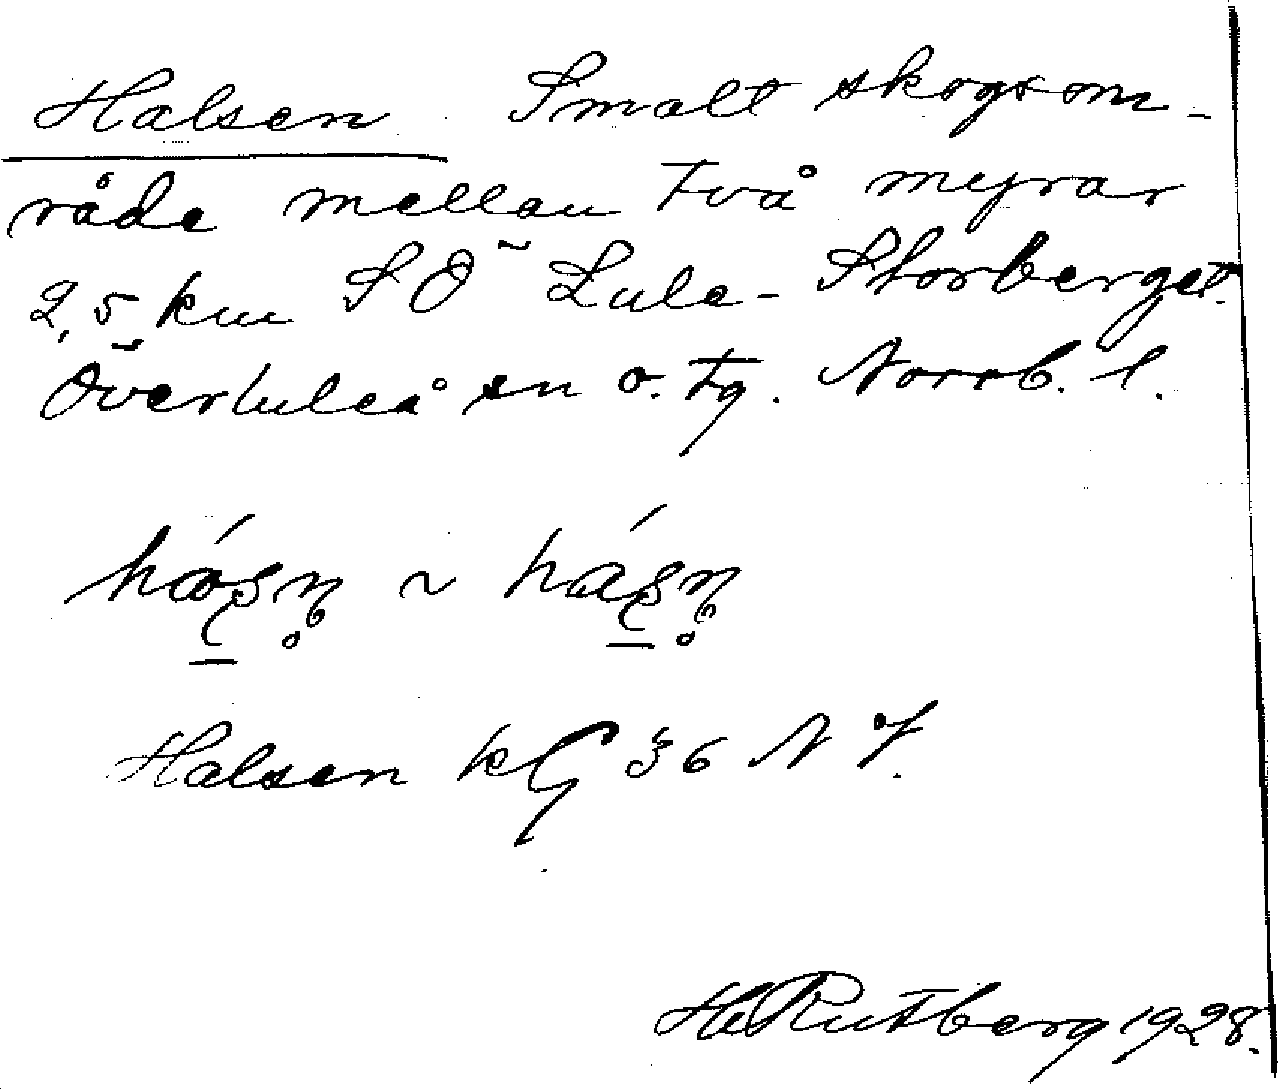 Halsen. Smalt skogsom-
råde mellan två myrar
2,5 km SÖ Lule-Storberget.
Överluleå sn o. tg. Norrb. l.
Halsen kG 36 NV.
HRutberg 1928.